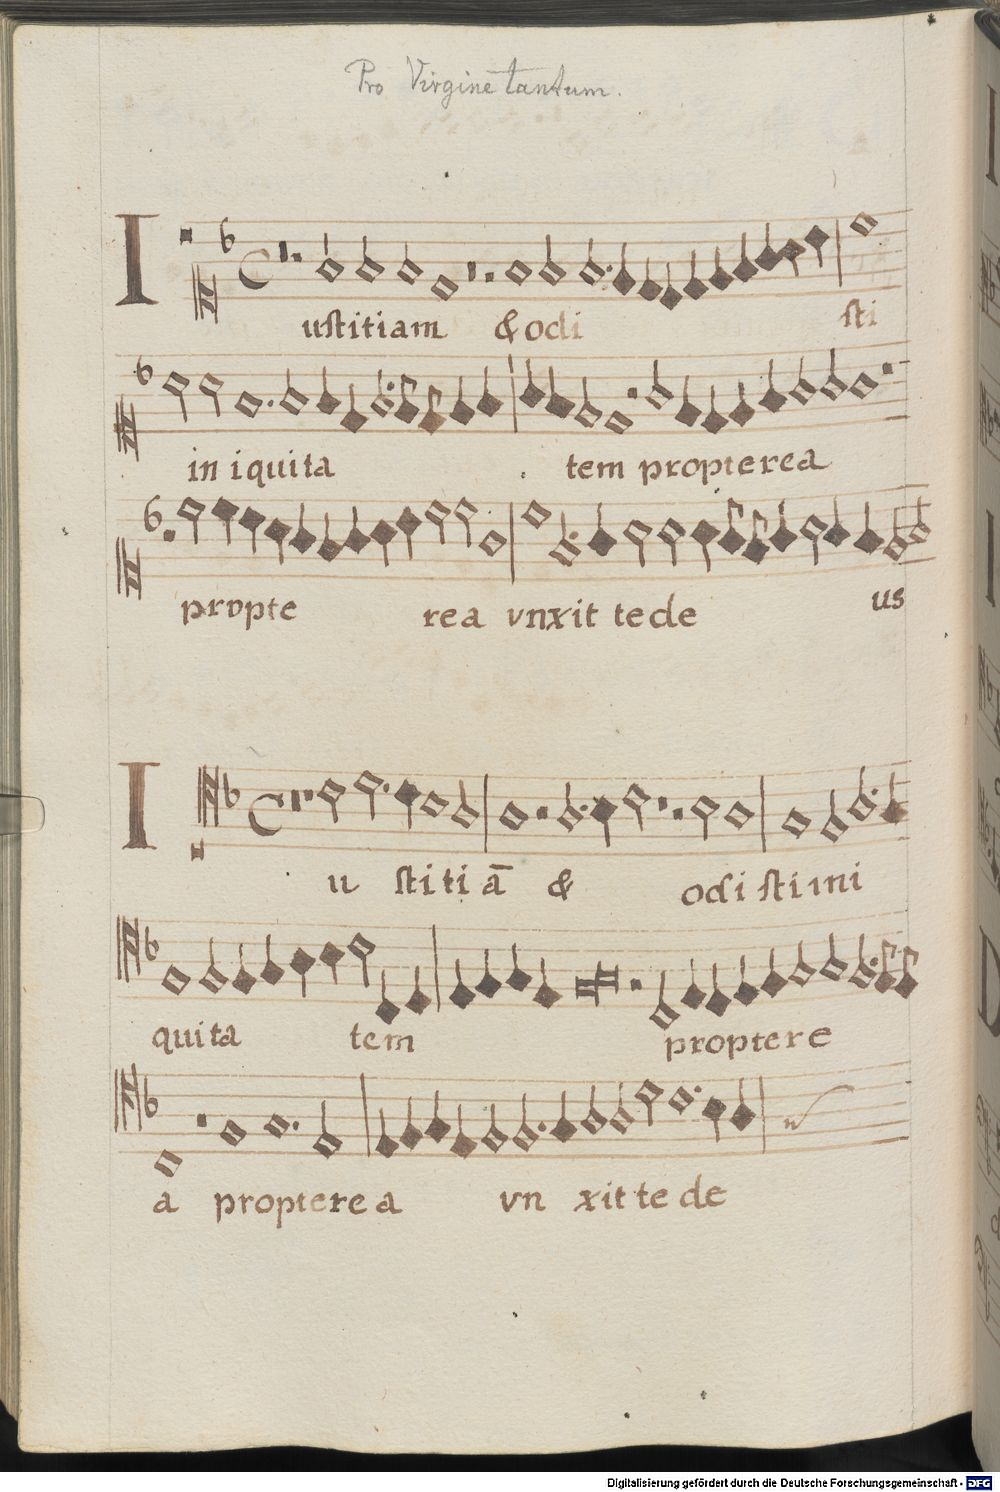 Pro Virgine tantum.
Iustitiam & odi sti
in iquita tem propterea
propte rea vnxit te de us
Iu stiti ā & odi sti ini
quita tem proptere
a propterea vn xit te de
Digitalisierung gefördert durch die Deutsche Forschungsgemeinschaft - DFG